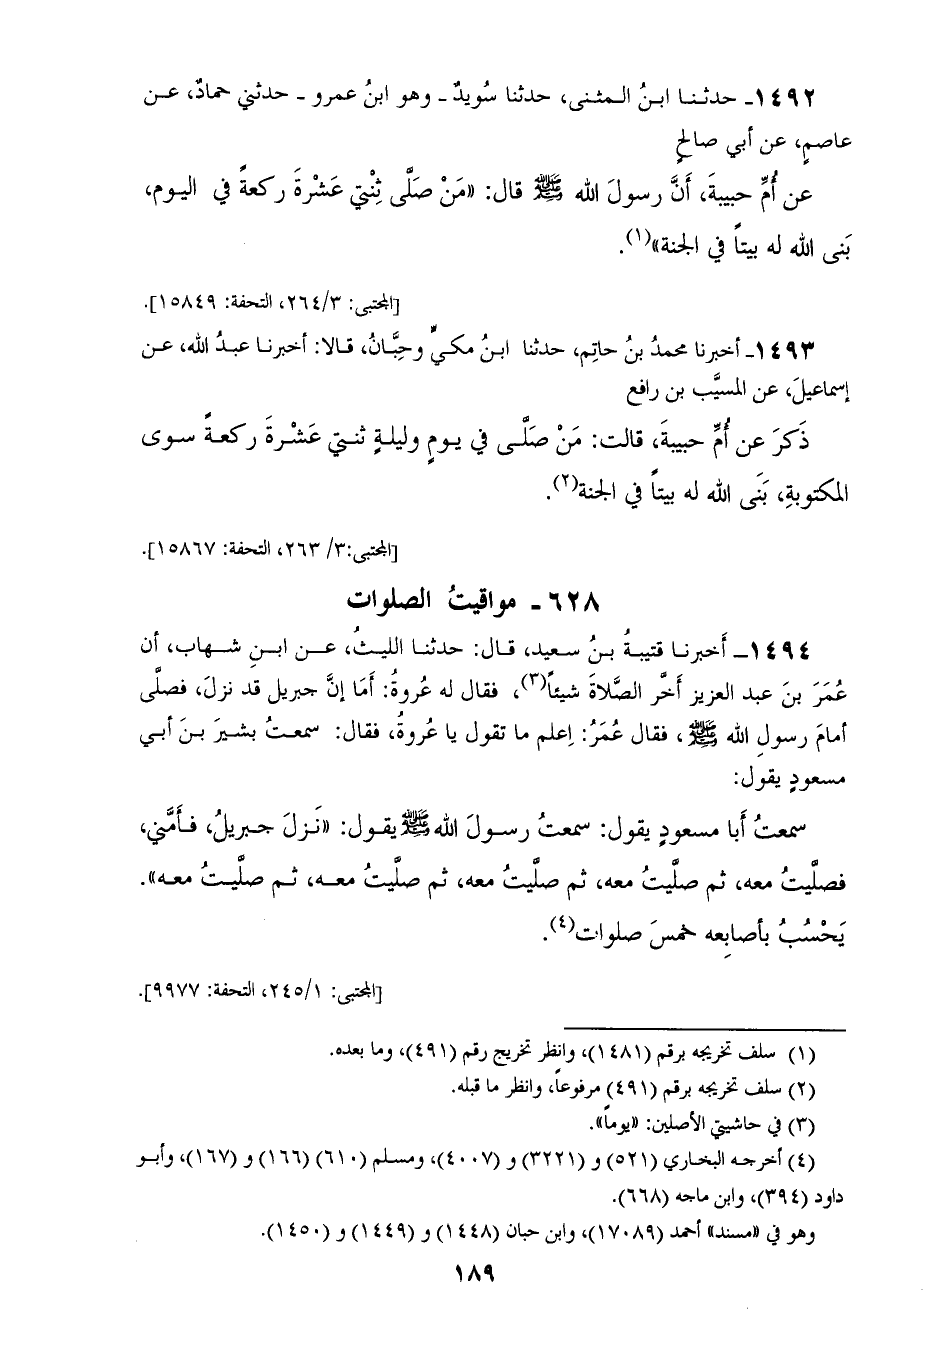 ١٤٩٢ـ حدثنا ابنُ المثنى، حدثنا سُويدٌ ـ وهو ابنُ عمرو ـ حدثني حمادٌ، عن
عاصمٍ، عن أبي صالحٍ
عن أُمِّ حبيبةَ، أنَّ رسولَ الله ﷺ قال: «مَنْ صَلَّى ثِنْتَيْ عَشْرةَ ركعةً في اليوم،
بَنى الله له بيتاً في الجنة»(١).
[المجتبى: ٢٦٤/٣، التحفة: ١٥٨٤٩].
١٤٩٣ـ أخبرنا محمدُ بنُ حاتِم، حدثنا ابنُ مكيٍّ وحِبَّانُ، قالا: أخبرنا عبدُ الله، عن
إسماعيلَ، عن المسيَّب بن رافع
ذَكرَ عن أُمِّ حبيبةَ، قالت: مَنْ صَلَّى في يومٍ وليلةٍ ثنتي عَشْرةَ ركعةً سوى
المكتوبةِ، بَنَى الله له بيتاً في الجنة(٢).
[المجتبى:٢٦٣/٣، التحفة: ١٥٨٦٧].
٦٢٨ ـ مواقيتُ الصلوات
١٤٩٤ـ أَخبرنا قتيبةُ بنُ سعيد، قال: حدثنا الليثُ، عن ابنِ شهاب، أن
عُمَرَ بنَ عبد العزيز أخَّر الصَّلاةَ شيئاً(٣)، فقال له عُروةُ: أمَا إنَّ جبريل قد نزلَ، فصلَّى
أمامَ رسولِ الله ﷺ، فقال عُمَرُ: اِعلم ما تقول يا عُروةُ، فقال: سمعتُ بشيرَ بنَ أبي
مسعودٍ يقول:
سمعتُ أبا مسعودٍ يقول: سمعتُ رسولَ اللهﷺ يقول: «نَزلَ جبريلُ، فأمَّني،
فصلَّيتُ معه، ثم صلَّيتُ معه، ثم صلَّيتُ معه، ثم صلَّيتُ معه، ثم صلَّيتُ معه».
يَحْسُبُ بأصابِعه خمسَ صلوات(٤).
[المجتبى: ٢٤٥/١، التحفة: ٩٩٧٧].
(١) سلف تخريجه برقم (١٤٨١)، وانظر تخريج رقم (٤٩١)، وما بعده.
(٢) سلف تخريجه برقم (٤٩١) مرفوعاً، وانظر ما قبله.
(٣) في حاشيتي الأصلين: «يوماً».
(٤) أخرجه البخاري (٥٢١) و (٣٢٢١) و (٤٠٠٧)، ومسلم (٦١٠) (١٦٦) و (١٦٧)، وأبو
داود (٣٩٤)، وابن ماجه (٦٦٨).
وهو في «مسند» أحمد (١٧٠٨٩)، وابن حبان (١٤٤٨) و (١٤٤٩) و (١٤٥٠).
١٨٩